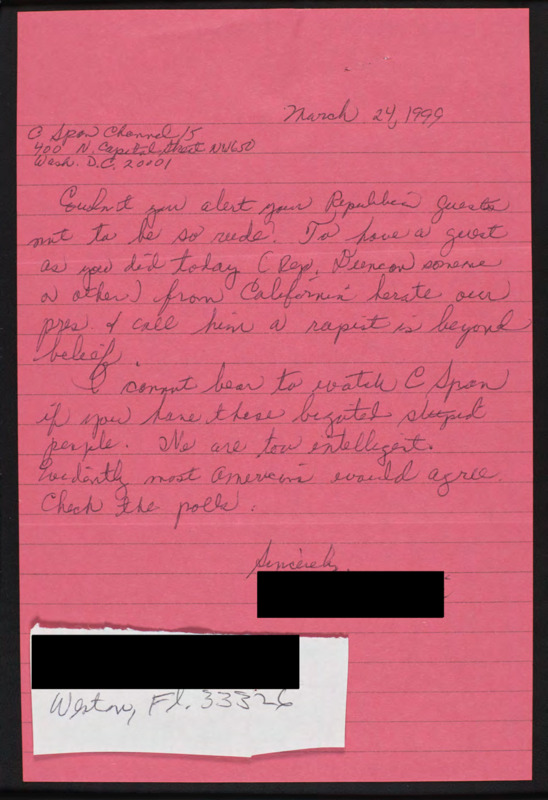 March 24, 1999
C Span Channel 15
400 N. Capital Street NW 650
Wash. D.C. 20001
Couldn't you alert your Republican guests
not to be so rude. To have a guest
as you did today (Rep. Duncan someone
or other) from California berate our
pres. & call him a rapist is beyond
belief.
I cannot bear to watch C Span
if you have these bigoted stupid
people. We are too intelligent.
Evidently most Americans would agree.
Check the polls.
Sincerely,
Weston, Fl. 33326